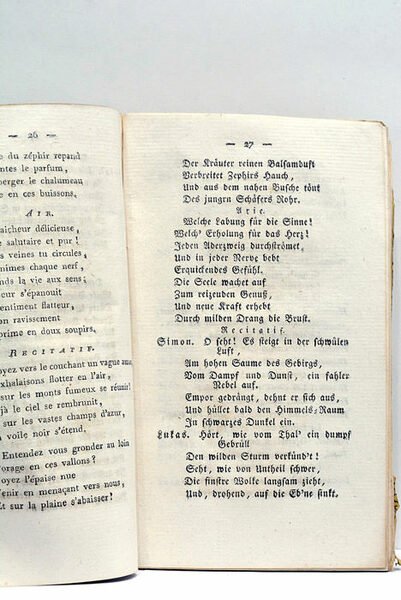 — 26 —
du zéphir repand
le parfum,
le chalumeau
en ces buissons.
AIR.
délicieuse,
salutaire et pur !
veines tu circules,
chaque nerf,
la vie aux sens ;
s'épanouit
flatteur,
ravissement
en doux soupirs.
RECITATIF.
vers le couchant un vague
flotter en l'air,
sur les monts fumeux se
le ciel se rembrunit,
sur les vastes champs d'azur,
voile noir s'étend.
Entendez vous gronder au loin
l'orage en ces vallons ?
l'épaise nue
en menaçant vers nous,
Et sur la plaine s'abaisser !
— 27 —
Der Kräuter reinen Balsamduft
Verbreitet Zephirs Hauch,
Und aus dem nahen Busche tönt
Des jungen Schäfers Rohr.
Arie.
Welche Labung für die Sinne !
Welch' Erholung für das Herz !
Jeden Aderzweig durchströmet,
Und in jeder Nerve bebt
Erquickendes Gefühl.
Die Seele wachet auf
Zum reizenden Genuß,
Und neue Kraft erhebt
Durch milden Drang die Brust.
Recitatif.
Simon. O seht! Es steigt in der schwülen
Luft,
Am hohen Saume des Gebirgs,
Vom Dampf und Dunst, ein fahler
Nebel auf.
Empor gedrängt, dehnt er sich aus,
Und hüllet bald den Himmels-Raum
In schwarzes Dunkel ein.
Lukas. Hört, wie vom Thal' ein dumpf
Gebrüll
Den wilden Sturm verkünd't !
Seht, wie von Unheil schwer,
Die finstre Wolke langsam zieht,
Und, drohend, auf die Eb'ne sinkt.